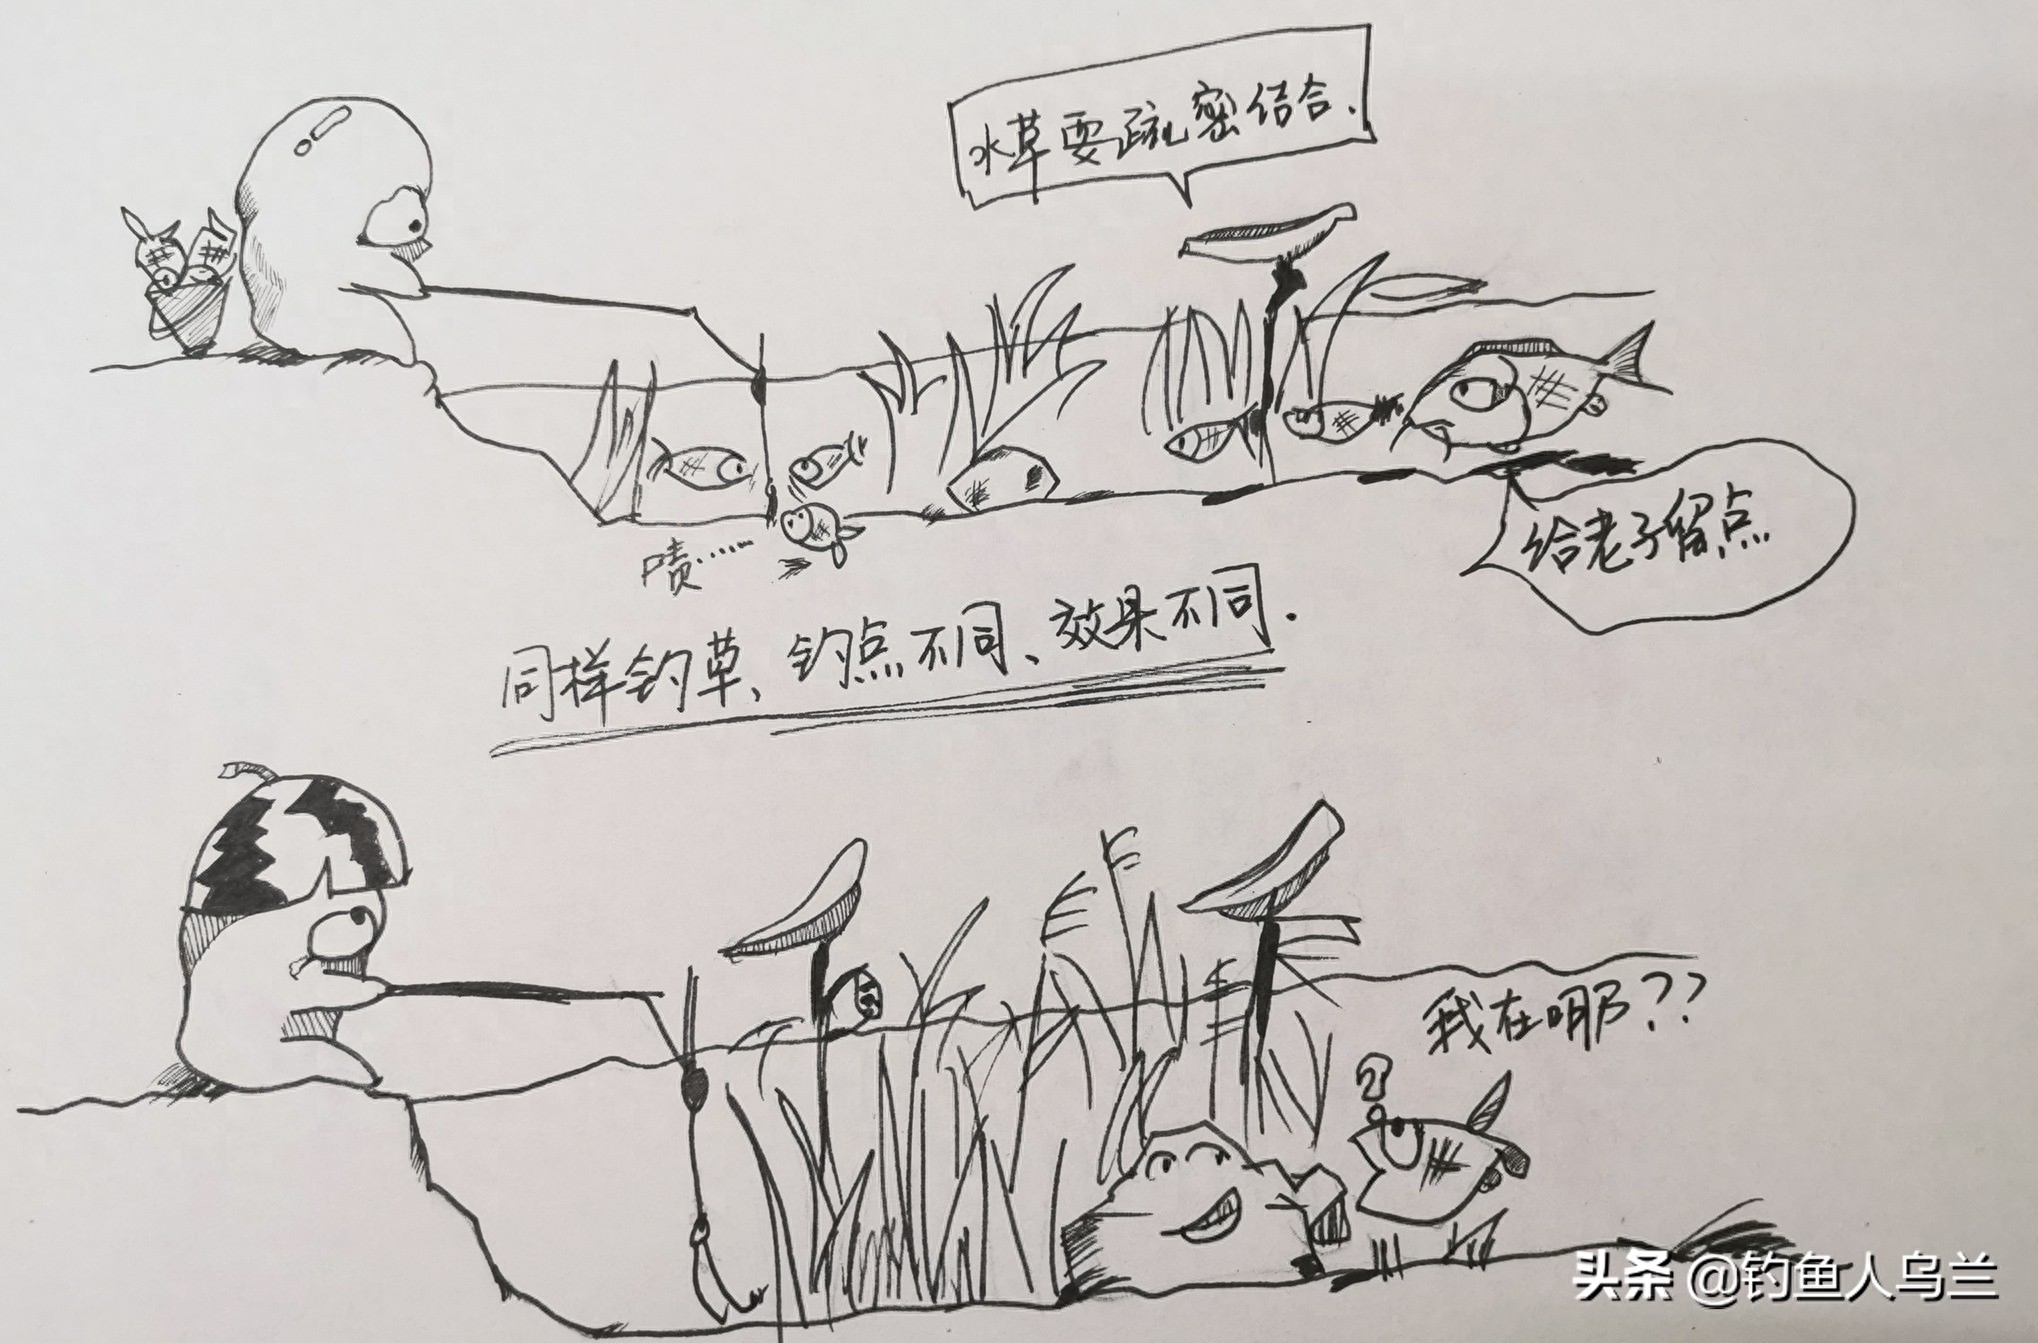 水草要疏密结合.
给老子留点
啧……
同样钓草、钓点不同、效果不同.
我在哪??
?
头条 @钓鱼人乌兰